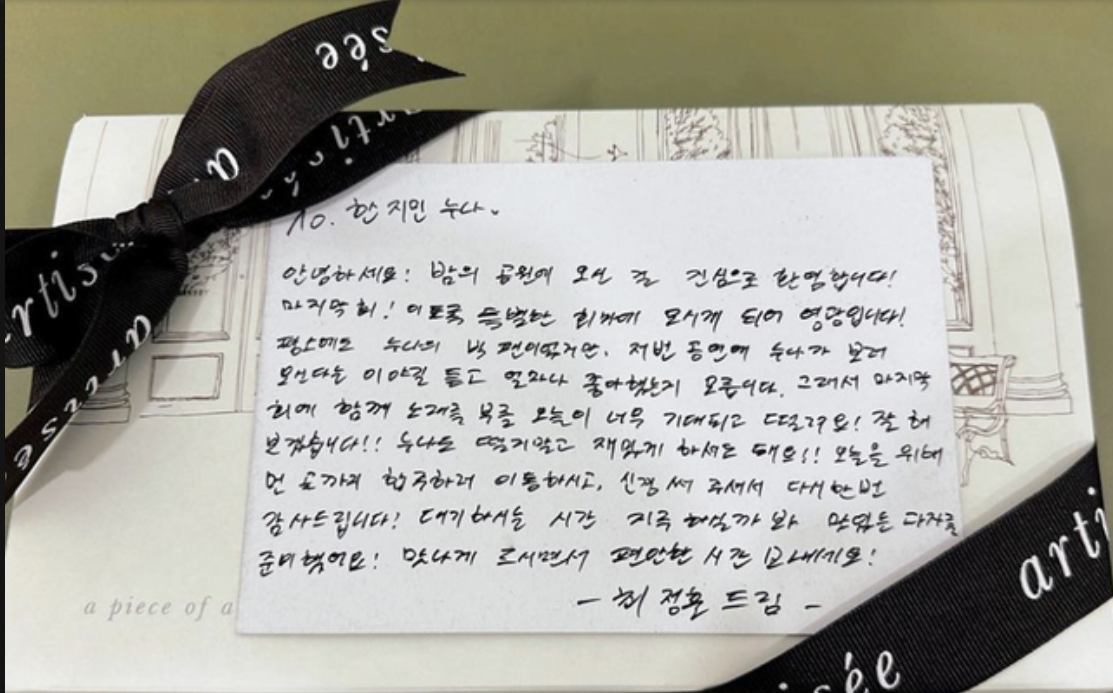 sée
arti
artisée
artisée
To. 한 지민 누나.
안녕하세요! 밤의 공원에 오신 걸 진심으로 환영합니다!
마지막 회! 이토록 특별한 회차에 모시게 되어 영광입니다!
평소에도 누나의 빅 팬이었지만, 저번 공연에 누나가 보러
오신다는 이야길 듣고 얼마나 좋아했는지 모릅니다. 그래서 마지막
회에 함께 노래를 부를 오늘이 너무 기대되고 떨려요! 잘 해
보겠습니다!! 누나도 떨지말고 재밌게 하셔도 돼요!! 오늘을 위해
먼 곳까지 합주하러 이동하시고, 신경 써 주셔서 다시한번
감사드립니다! 대기하시는 시간 지루 하실까 봐 맛있는 과자를
준비했어요! 맛나게 드시면서 편안한 시간 보내세요!
- 최 정훈 드림 -
a piece of a
arti
sée